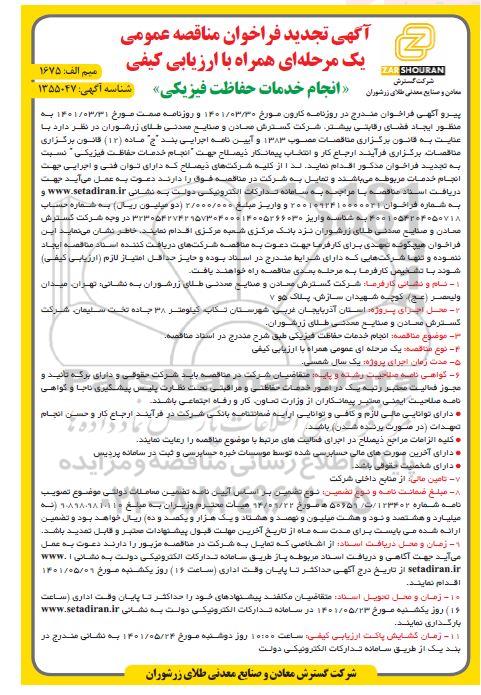 آگهی تجدید فراخوان مناقصه عمومی
یک مرحله‌ای همراه با ارزیابی کیفی
« انجام خدمات حفاظت فیزیکی »
میم الف: ۱۶۷۵
شناسه آگهی: ۱۳۵۵۰۴۷
ZARSHOURAN
شرکت گسترش
معادن و صنایع معدنی طلای زرشوران
پیرو آگهی فراخوان مندرج در روزنامه کارون مورخ ۱۴۰۱/۰۳/۳۰ و روزنامه صمت مورخ ۱۴۰۱/۰۳/۳۱ به
منظور ایجاد فضای رقابتی بیشتر، شرکت گسترش معادن و صنایع معدنی طلای زرشوران در نظر دارد با
عنایت به قانون برگزاری مناقصات مصوب ۱۳۸۳ و آیین نامه اجرایی بند "ج" ماده (۱۲) قانون برگزاری
مناقصات، برگزاری فرآیند ارجاع کار و انتخاب پیمانکار ذیصلاح جهت "انجام خدمات حفاظت فیزیکی" نسبت
به تجدید فراخوان مذکور اقدام نماید. لذا از کلیه شرکت‌های ذیصلاح که دارای توان فنی و اجرایی جهت
انجام خدمات مربوطه می‌باشند و تمایل به شرکت در مناقصه فوق را دارند دعوت به عمل می‌آید جهت
دریافت اسناد مناقصه با مراجعه به سامانه تدارکات الکترونیکی دولت به نشانی www.setadiran.ir و
به شماره فراخوان ۲۰۰۱۰۹۲۴۱۰۰۰۰۰۲۱ و واریز مبلغ ۲/۰۰۰/۰۰۰ (دو میلیون ریال) به شماره حساب
در وجه شرکت گسترش
معادن و صنایع معدنی طلای زرشوران نزد بانک مرکزی شعبه مرکزی اقدام نمایند. خاطر نشان می‌نماید این
فراخوان هیچگونه تعهدی برای کارفرما جهت دعوت به مناقصه شرکت‌های دریافت کننده اسناد مناقصه ایجاد
ننموده و تنها شرکت‌هایی که دارای شرایط مندرج در اسناد بوده و حایز حداقل امتیاز لازم (ارزیابی کیفی)
شوند با تشخیص کارفرما به مرحله بعدی مناقصه راه خواهند یافت.
۱- نام و نشانی کارفرما: شرکت گسترش معادن و صنایع معدنی طلای زرشوران به نشانی: تهران، میدان
ولیعصر (عج)، کوچه شهیدان سازش، پلاک ۵ و ۷
۲- محل اجرای پروژه: استان آذربایجان غربی، شهرستان تکاب، کیلومتر ۳۸ جاده تخت سلیمان، شرکت
گسترش معادن و صنایع معدنی طلای زرشوران.
۳- موضوع مناقصه: انجام خدمات حفاظت فیزیکی طبق شرح مندرج در اسناد مناقصه.
۴- نوع مناقصه: یک مرحله ای عمومی همراه با ارزیابی کیفی
۵- مدت زمان اجرای پروژه: یک سال شمسی.
۶- گواهی نامه صلاحیت رشته و پایه: متقاضیان شرکت در مناقصه باید شرکت حقوقی و دارای برگه تأیید و
مجوز فعالیت معتبر رتبه یک در امور خدمات حفاظتی و مراقبتی تحت نظارت پلیس پیشگیری ناجا و گواهی
نامه صلاحیت ایمنی معتبر پیمانکاران از وزارت تعاون، کار و رفاه اجتماعی باشند.
● دارای توانایی مالی لازم و کافی و توانایی ارایه ضمانتنامه بانکی شرکت در فرآیند ارجاع کار و حسن انجام
تعهدات (در صورت برنده شدن) باشند.
● کلیه الزامات مراجع ذیصلاح در اجرای فعالیت های مرتبط با موضوع مناقصه را رعایت نمایند.
● دارای آخرین صورت های مالی حسابرسی شده توسط موسسات خبره حسابرسی و ثبت در سامانه پردیس
● دارای شخصیت حقوقی باشد.
۷- تامین مالی: از منابع داخلی شرکت
۸- مبلغ ضمانت نامه و نوع تضمین: نوع تضمین بر اساس آیین نامه تضمین معاملات دولتی موضوع تصویب
نامه شماره ۱۲۳۴۰۲/ت ۵۰۶۵۹ هـ مورخ ۹۴/۰۹/۲۲ هیأت محترم وزیران به مبلغ ۹،۸۹۸،۹۸۱،۱۱۰ (نه
میلیارد و هشتصد و نود و هشت میلیون و نهصد و هشتاد و یک هزار و یکصد و ده) ریال خواهد بود و تضمین
ارائه شده می بایست برای مدت سه ماه از تاریخ آخرین مهلت قبول پیشنهادات معتبر و قابل تمدید باشد.
۹- زمان و محل دریافت اسناد: از اشخاصی که تمایل به شرکت در مناقصه مزبور را دارند دعوت به عمل
می‌آید جهت آگاهی و دریافت اسناد مربوطه از طریق سامانه تدارکات الکترونیکی دولت به نشانی www.
setadiran.ir از تاریخ درج آگهی حداکثر تا پایان وقت اداری (ساعت ۱۶) روز یکشنبه مورخ ۱۴۰۱/۰۵/۰۹
اقدام نمایند.
۱۰- زمان و محل تحویل اسناد: متقاضیان مکلفند پیشنهادهای خود را حداکثر تا پایان وقت اداری (ساعت
۱۶) روز یکشنبه مورخ ۱۴۰۱/۰۵/۲۳ در سامانه تدارکات الکترونیکی دولت به نشانی www.setadiran.ir
بارگذاری نمایند.
۱۱- زمان گشایش پاکت ارزیابی کیفی: ساعت ۱۰:۰۰ روز دوشنبه مورخ ۱۴۰۱/۰۵/۲۴ به نشانی مندرج در
بند یک از طریق سامانه تدارکات الکترونیکی دولت
شرکت گسترش معادن و صنایع معدنی طلای زرشوران